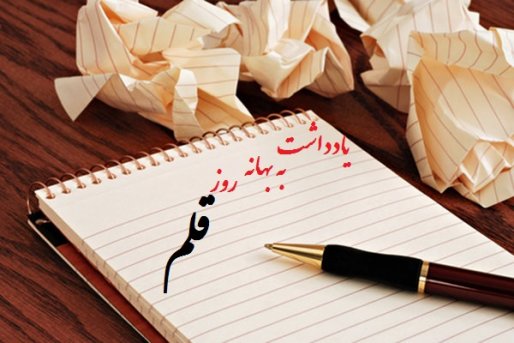 یادداشت
به بهانه روز
قلم